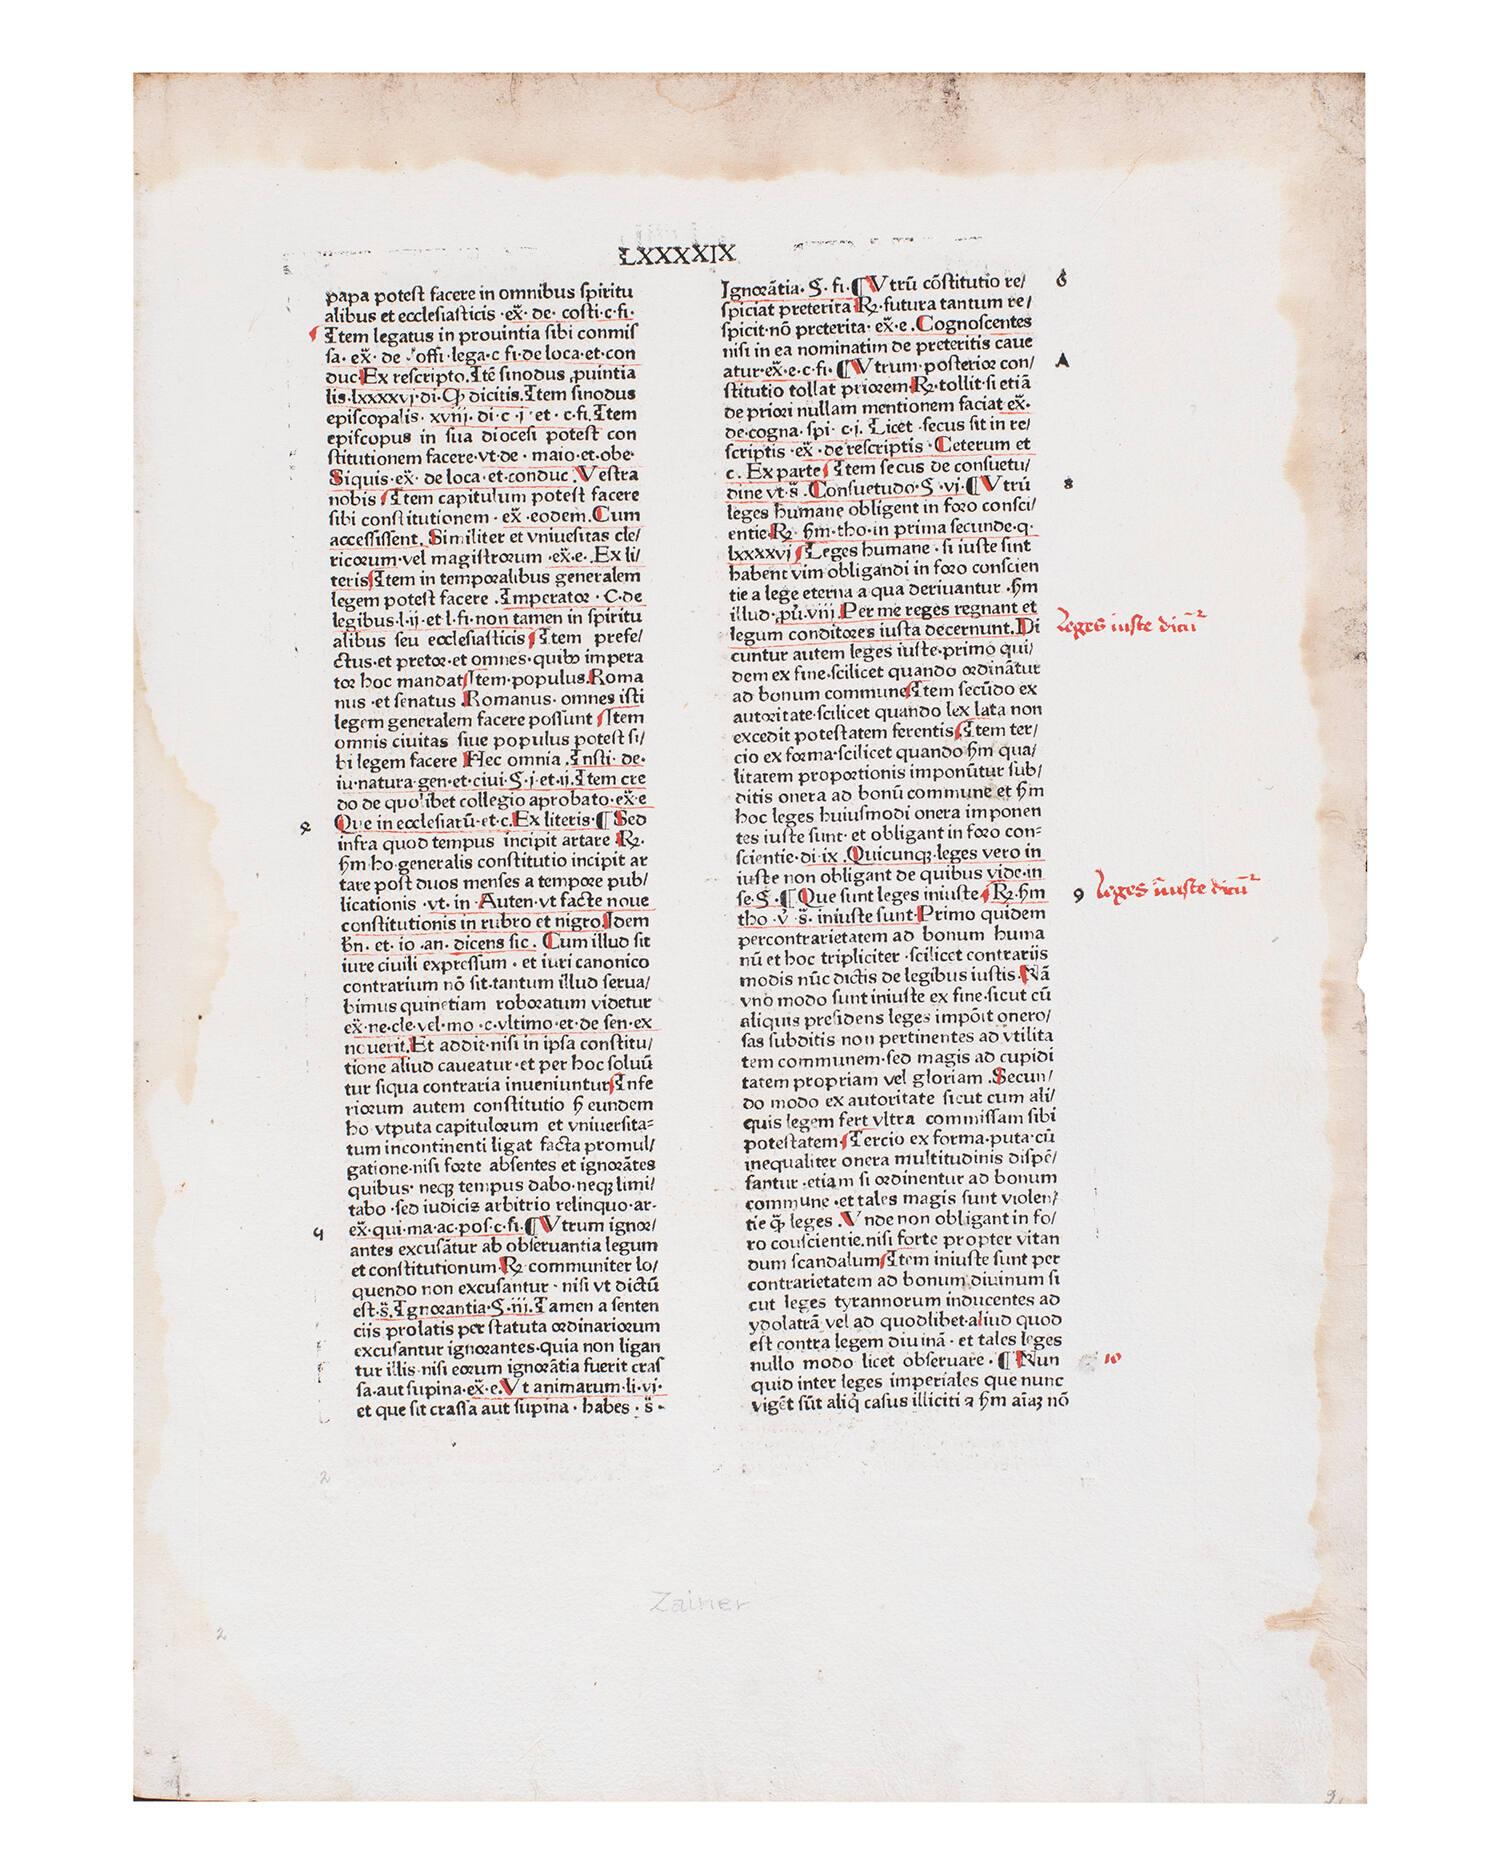 LXXXXIX
papa potest facere in omnibus spiritu
alibus et ecclesiasticis ·ex̄· de· costi·c·fi·
Item legatus in prouintia sibi conmis
sa· ex̄· de ·offi·lega·c fi·de loca·et·con
duc·Ex rescripto.Itē sinodus ꝓuintia
lis·lxxxxvj·di·Ꝙ dicitis.Item sinodus
episcopalis· xviij· di·c·j·et· c·fi.Item
episcopus in sua diocesi potest con
stitutionem facere·vt·de· maio·et·obe·
Siquis·ex̄· de loca·et·conduc.Vestra
nobis Item capitulum potest facere
sibi constitutionem · ex̄ ·eodem.Cum
accessissent. Similiter et vniuesitas cle/
ricorum·vel magistrorum ·ex̄·e·.Ex li/
teris Item in temporalibus generalem
legem potest facere .Imperator· C·de
legibus·l·ij·et l·fi·non tamen in spiritu
alibus seu ecclesiasticis Item prefe/
ctus·et pretor·et omnes·quibꝫ impera
tor hoc mandat Item·populus.Roma
nus ·et senatus .Romanus· omnes isti
legem generalem facere possunt Item
omnis ciuitas siue populus potest si/
bi legem facere Hec omnia .Insti· de·
iu·natura·gen·et·ciui·§·j·et·ij.Item cre
do de quolibet collegio aprobato·ex̄·e
2
Que in ecclesiarū·et·c.Ex literis·¶Sed
infra quod tempus incipit artare ℞·
ẜm·ho·generalis constitutio incipit ar
tare post duos menses a tempore pub/
licationis ·vt· in ·Auten·vt facte noue
constitutionis in rubro et nigro.Idem
bn̄· et· io ·an· dicens sic. Cum illud sit
iure ciuili expressum · et iuri canonico
contrarium nō sit·tantum illud serua/
bimus quinetiam roboratum videtur
ex̄·ne·cle·vel·mo ·c·vltimo·et·de sen·ex
nouerit.Et addit·nisi in ipsa constitu/
tione aliud caueatur·et per hoc soluū
tur siqua contraria inueniuntur Infe
riorum autem constitutio ẜ eundem
ho vtputa capitulorum et vniuersita=
tum incontinenti ligat facta promul/
gatione·nisi forte absentes et ignorātes
quibus· neqꝫ tempus dabo·neqꝫ limi/
tabo ·sed iudicis arbitrio relinquo·ar·
4
ex̄·qui·ma·ac·pos·c·fi·¶Vtrum ignor/
antes excusātur ab obseruantia legum
et constitutionum·℞ communiter lo/
quendo non excusantur · nisi vt dictū
est·s̄·Ignorantia·§·iij.Tamen a senten
ciis prolatis per statuta ordinariorum
excusantur ignorantes·quia non ligan
tur illis·nisi eorum ignorātia fuerit cras
sa·aut supina·ex̄·e.Vt animarum·li·vj·
et que sit crassa aut supina · habes · s̄ ·
Ignorātia· §· fi·¶Vtrū cōstitutio re/
6
spiciat preterita ℞·futura tantum re/
spicit·nō preterita· ex̄·e .Cognoscentes
nisi in ea nominatim de preteritis caue
atur·ex̄·e·c·fi·¶Vtrum·posterior con/
A
stitutio tollat priorem·℞·tollit·si etiā
de priori nullam mentionem faciat ex̄·
de·cogna· spi· c·j. Licet ·secus sit in re/
scriptis ·ex̄ ·de rescriptis ·Ceterum et
c· Ex parte Item secus de consuetu/
dine vt·s̄ .Consuetudo·§·vj·¶Vtrū
8
leges humane obligent in foro consci/
entie·℞· ẜm·tho·in prima secunde·q·
lxxxxvj Leges humane · si iuste sint
habent vim obligandi in foro conscien
tie a lege eterna a qua deriuantur ·ẜm
illud·ꝓu·viij.Per me reges regnant et
legum conditores iusta decernunt.Di
leges iuste dicūt2
cuntur autem leges iuste·primo qui/
dem ex fine·scilicet quando ordināntur
ad bonum commune Item secūdo ex
autoritate·scilicet quando lex lata non
excedit potestatem ferentis Item ter/
cio ex forma·scilicet quando ẜm qua/
litatem proportionis imponūtur sub/
ditis onera ad bonū commune et ẜm
hoc leges huiusmodi onera imponen
tes iuste sunt· et obligant in foro con=
scientie·di·ix .Quicunqꝫ·leges vero in
iuste non obligant de quibus vide·in
se·§·¶Que sunt leges iniuste ℞·ẜm
9 leges īniuste dicūt2
tho ·v̇· s̄· iniuste sunt·Primo quidem
percontrarietatem ad bonum huma
nū et hoc tripliciter ·scilicet contrariis
modis nūc dictis de legibus iustis·Nā
vno modo sunt iniuste ex fine·sicut cū
aliquis presidens leges impōit onero/
sas subditis non pertinentes ad vtilita
tem communem·sed magis ad cupidi
tatem propriam vel gloriam .Secun/
do modo ex autoritate sicut cum ali/
quis legem fert vltra commissam sibi
potestatem Tercio ex forma·puta·cū
inequaliter onera multitudinis dispē/
santur ·etiam si ordinentur ad bonum
commune ·et tales magis sunt violen/
tie ꝙ̄ leges .Vnde non obligant in fo/
ro couscientie.nisi forte propter vitan
dum scandalum Item iniuste sunt per
contrarietatem ad bonum diuinum si
cut leges tyrannorum inducentes ad
ydolatrā vel ad quodlibet·aliud quod
est contra legem diuinā · et tales leges
nullo modo licet obseruare ·¶Nun
10
quid inter leges imperiales que nunc
vigēt sūt aliq̄ casus illiciti ⁊ ẜm aīaꝫ nō
2
Zainer
2
9